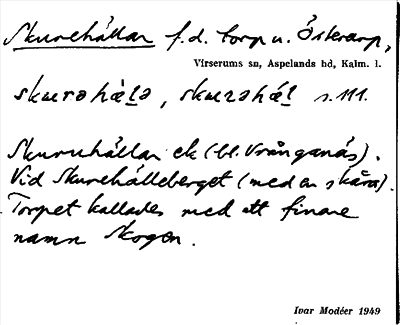 Skurehällan f.d. torp u. Österarp,
Virserums sn, Aspelands hd, Kalm. l.
skurəhàlə, skurəhál s. 111.
Skuruhällan ek (bl. Vrånganäs).
Vid Skurehälleberget (med en skåra).
Torpet kallades med ett finare
namn Skogen.
Ivar Modéer 1949